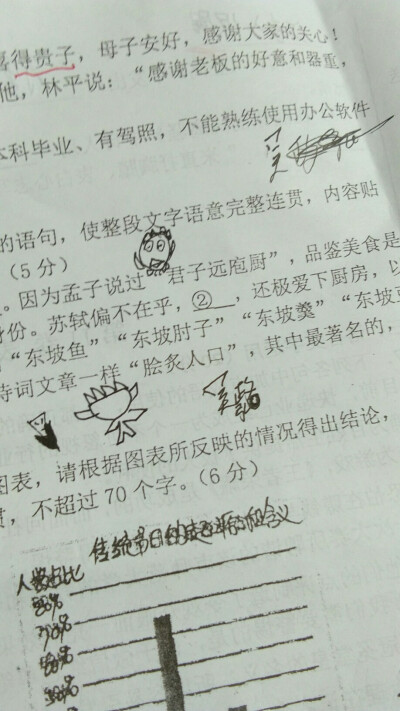 喜得贵子，母子安好，感谢大家的关心！
他，林平说：“感谢老板的好意和器重，
本科毕业、有驾照，不能熟练使用办公软件
的语句，使整段文字语意完整连贯，内容贴
（5分）
。因为孟子说过“君子远庖厨”，品鉴美食是
身份。苏轼偏不在乎，②，还极爱下厨房，以
“东坡鱼”“东坡肘子”“东坡羹”“东坡豆
诗词文章一样“脍炙人口”，其中最著名的，
图表，请根据图表所反映的情况得出结论，
贯，不超过70个字。（6分）
传统节日的
人数占比